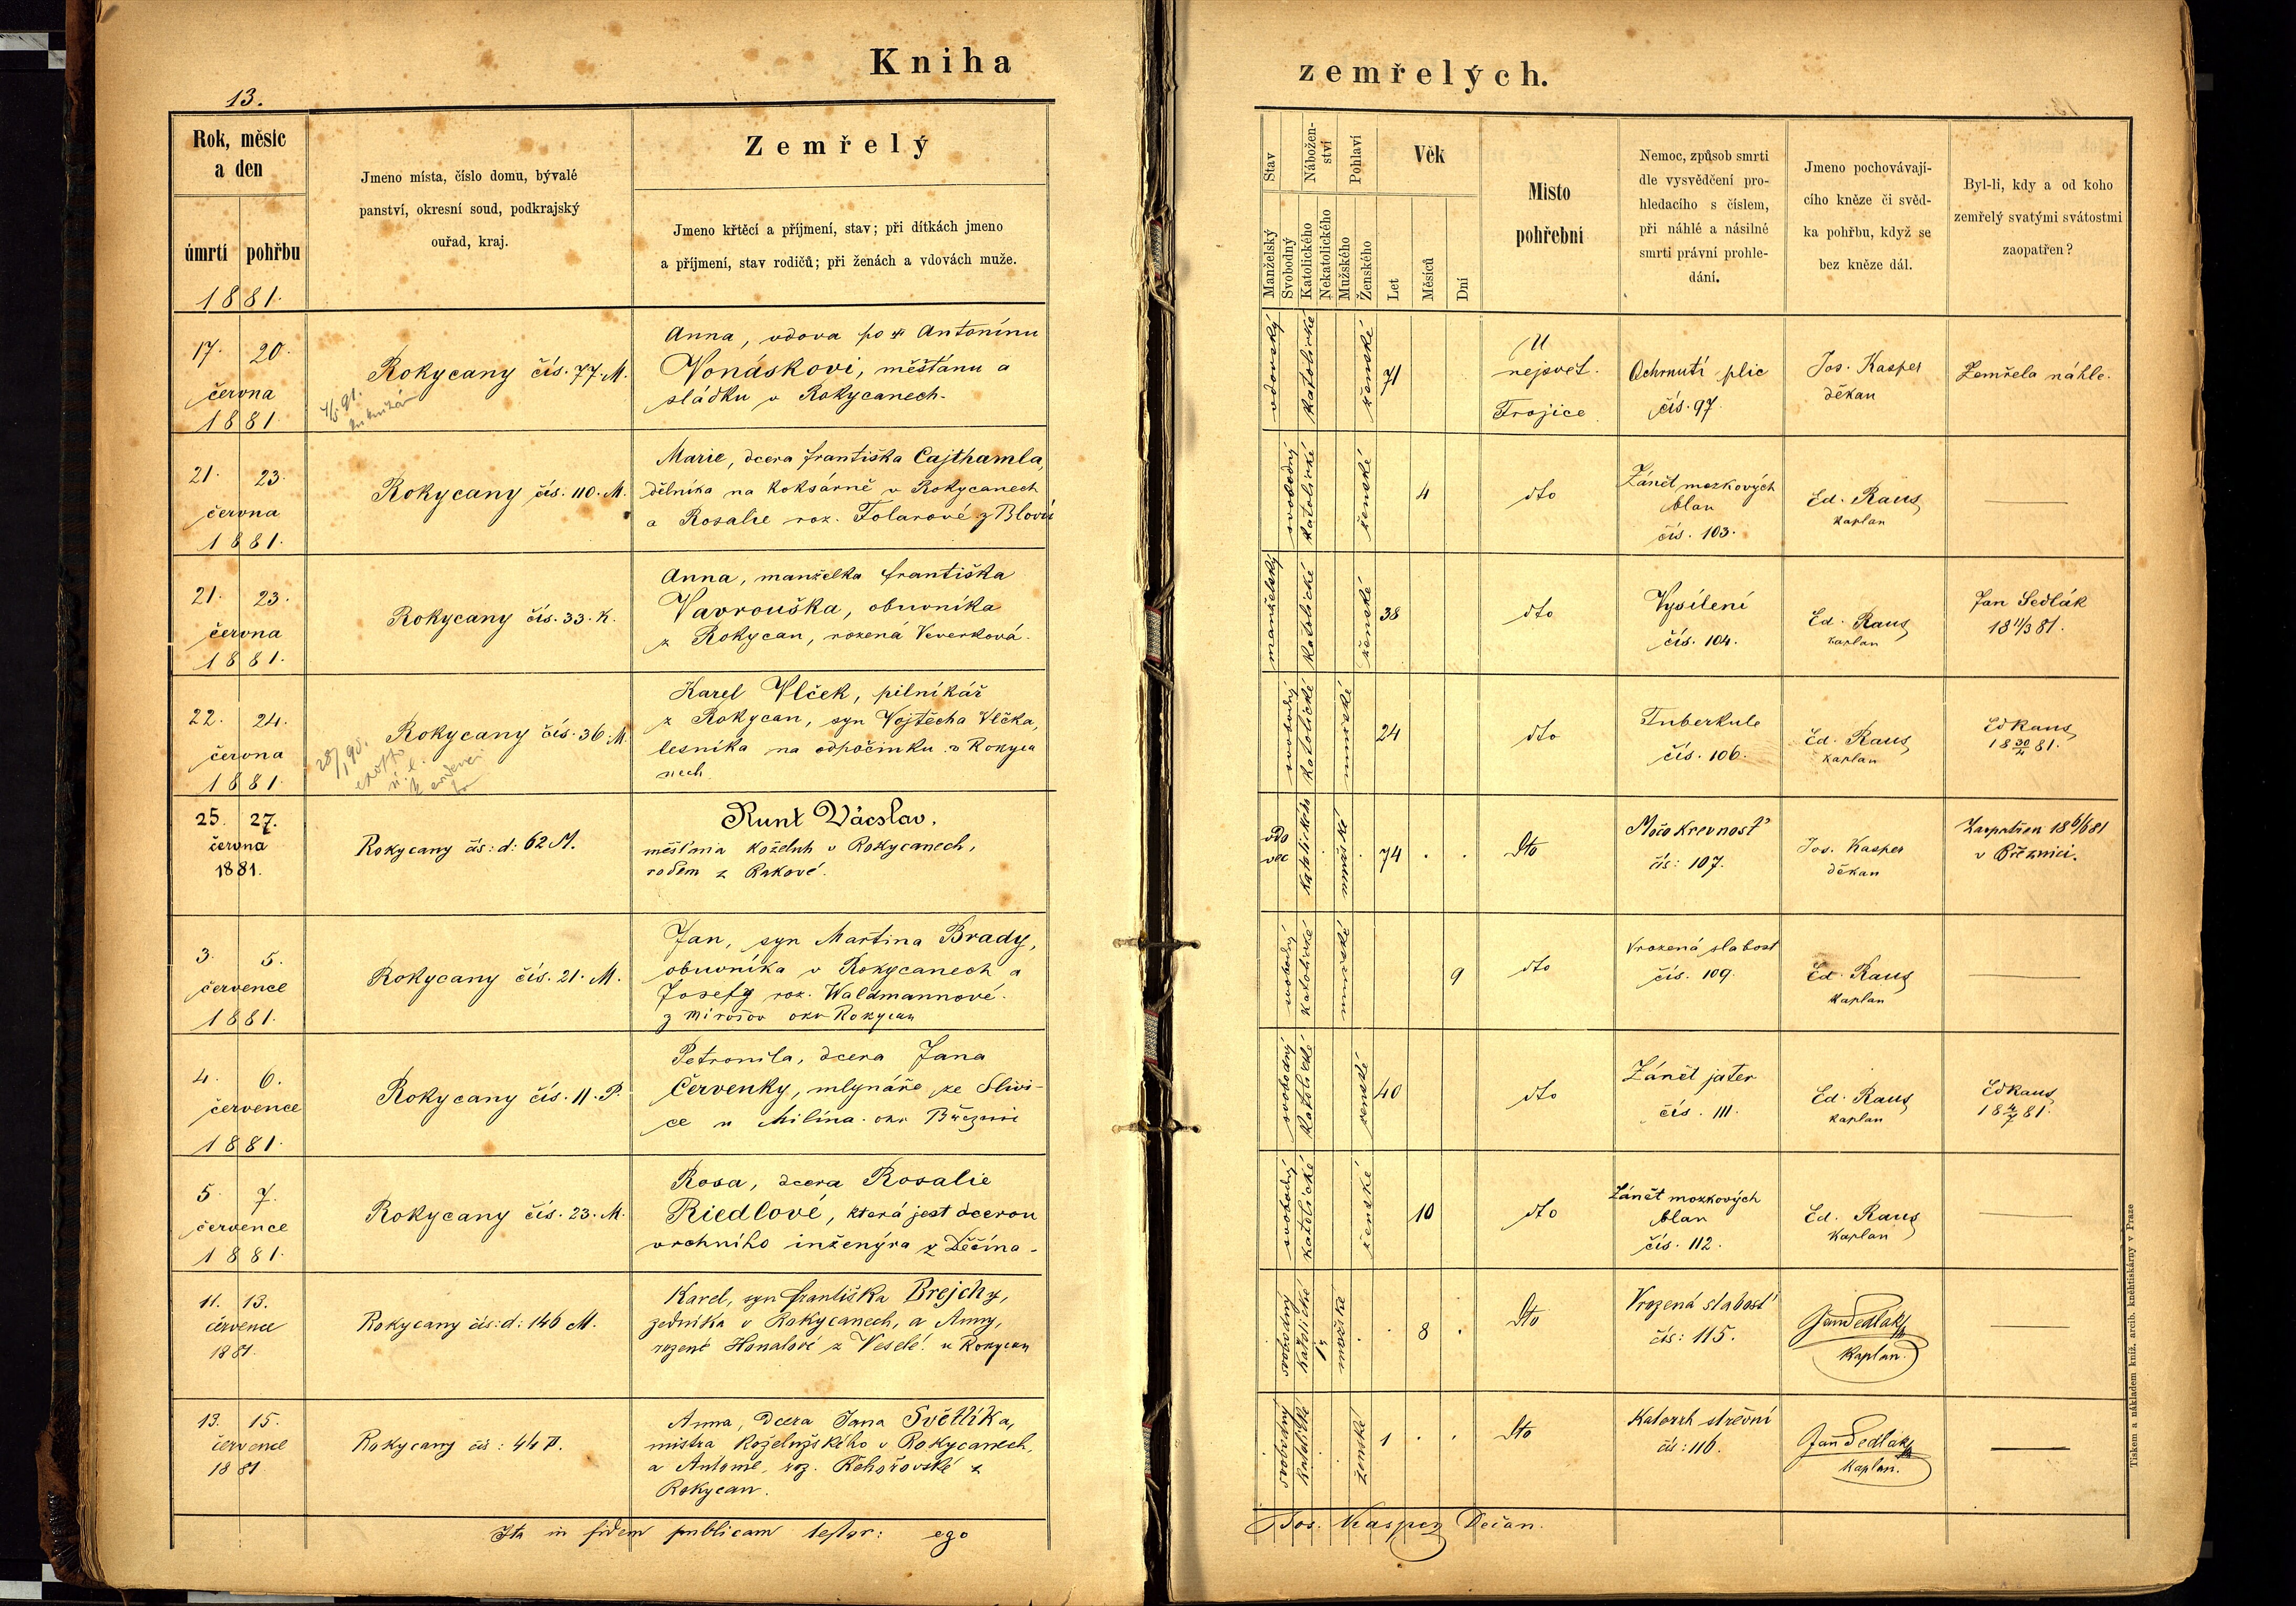 Kniha
zemřelých.
13.
Rok, měsíc
a den
úmrtí
pohřbu
1881.
Jmeno místa, číslo domu, bývalé
panství, okresní soud, podkrajský
ouřad, kraj.
Zemřelý
Jmeno křtěcí a příjmení, stav; při dítkách jmeno
a příjmení, stav rodičů; při ženách a vdovách muže.
Stav
Manželský
Svobodný
Nábožen-
ství
Katolického
Nekatolického
Pohlaví
Mužského
Ženského
Věk
Let
Měsíců
Dní
Místo
pohřební
Nemoc, způsob smrti
dle vysvědčení pro-
hledacího s číslem,
při náhlé a násilné
smrti právní prohle-
dání.
Jmeno pochovávají-
cího kněze či svěd-
ka pohřbu, když se
bez kněze dál.
Byl-li, kdy a od koho
zemřelý svatými svátostmi
zaopatřen?
17. 20.
června
1881.
Rokycany čís. 77. M.
Anna, vdova po Antonínu
Vonáskovi, měšťanu a
sládku v Rokycanech.
vdovský
katolické
ženské
71
U
nejsvět.
Trojice
Ochrnutí plic
čís. 97.
Jos. Kasper
děkan
Zemřela náhle.
21. 23.
června
1881.
Rokycany čís. 110. M.
Marie, dcera Františka Cajthamla,
dělníka na koksárně v Rokycanech
a Rosalie roz. Tolarové z Blovic
svobodný
katolické
ženské
4
dto
Zánět mozkových
blan
čís. 103.
Ed. Raus
kaplan
21. 23.
června
1881.
Rokycany čís. 33. K.
Anna, manželka Františka
Vavrouška, obuvníka
z Rokycan, rozená Veverková.
manželský
katolické
ženské
38
dto
Vysílení
čís. 104.
Ed. Raus
kaplan
Jan Sedlák
18 11/3 81.
22. 24.
června
1881.
Rokycany čís. 36. M.
28/1 90.
Karel Vlček, pilníkář
z Rokycan, syn Vojtěcha Vlčka,
lesníka na odpočinku v Rokyca
nech
svobodný
katolické
mužské
24
dto
Tuberkule
čís. 106.
Ed. Raus
kaplan
Ed Raus
18 30/4 81.
25. 27.
června
1881.
Rokycany čís: d: 62 M.
Runt Václav.
měšťan koželuh v Rokycanech,
rodem z Rakové.
vdo
vec
katolického
mužské
74
Dto
Močokrevnosť
čís: 107.
Jos. Kasper
děkan
Zaopatřen 18 6/6 81
v Březnici.
3. 5.
července
1881.
Rokycany čís. 21. M.
Jan, syn Martina Brady,
obuvníka v Rokycanech a
Josefy roz. Waldmannové.
z Mirošov okr Rokycan
svobodný
katolické
mužské
9
dto
Vrozená slabost
čís. 109.
Ed. Raus
kaplan
4. 6.
července
1881.
Rokycany čís. 11. P.
Petronila, dcera Jana
Červenky, mlynáře ze Slivi-
ce u Milína. okr Březnic
svobodný
katolické
ženské
40
dto
Zánět jater
čís. 111.
Ed. Raus
kaplan
Ed Raus
18 4/7 81.
5. 7.
července
1881.
Rokycany čís. 23. M.
Rosa, dcera Rosalie
Riedlové, která jest dcerou
vrchního inženýra z Děčína.
svobodný
katolické
ženské
10
dto
Zánět mozkových
blan
čís. 112.
Ed. Raus
kaplan
11. 13.
července
1881.
Rokycany čís: d: 146 M.
Karel, syn Františka Brejchy,
zedníka v Rokycanech, a Anny,
rozené Honalové z Veselé. u Rokycan
svobodný
katolické
mužské
8
Dto
Vrozená slabosť
čís: 115.
Jan Sedlák
kaplan.
13. 15.
července
1881
Rokycany čís: 44 P.
Anna, dcera Jana Světlíka,
mistra koželužského v Rokycanech,
a Antonie, roz. Řehořovské z
Rokycan.
svobodný
katolické
ženské
1
Dto
Katarrh střevní
čís: 116.
Jan Sedlák
kaplan.
Ita in fidem publicam testor: ego
Jos. Kasper Dečan.
Tiskem a nákladem kníž. arcib. kněhtiskárny v Praze